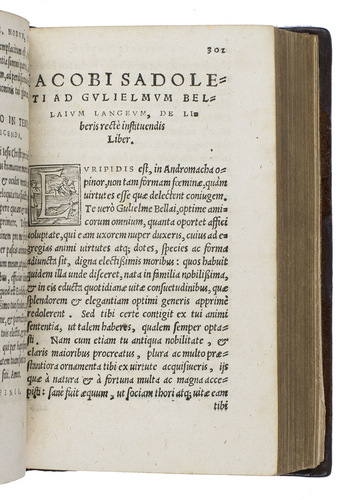 301
IACOBI SADOLE-
TI AD GVLIELMVM BEL-
LAIVM LANGEVM, DE LI-
beris rectè instituendis
Liber.
EVRIPIDIS est, in Andromacha o-
pinor, non tam formam fœminæ, quàm
uirtutes esse quæ delectent coniugem.
Te uerò Gulielme Bellai, optime ami-
corum omnium, quanta oportet affici
uoluptate, qui eam uxorem nuper duxeris, cuius ad e-
gregias animi uirtutes atq; dotes, species ac forma
adiuncta sit, digna electißimis moribus: quos habuit
quidem illa unde disceret, nata in familia nobilißima,
& in eis educta quotidianæ uitæ consuetudinibus, quæ
splendorem & elegantiam optimi generis apprimè
redolerent. Sed tibi certe contigit ex tui animi
sententia, ut talem haberes, qualem semper opta-
sti. Nam cum etiam tu antiqua nobilitate, &
claris maioribus procreatus, plura ac multo præ-
stantiora ornamenta tibi ex uirtute acquisiueris, ijs
quæ à natura & à fortuna multa ac magna acce-
pisti: sanè fuit æquum, ut sociam thori atq; uitæ eam
tibi